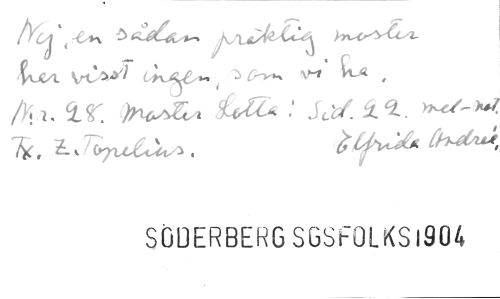 Nej, en sådan präktig moster
har visst ingen, som vi ha.
N:r. 28. Moster Lotta: Sid. 22. mel-not.
Tx. Z. Topelius. Elfrida Andrée,
SÖDERBERG SGSFOLKS 1904